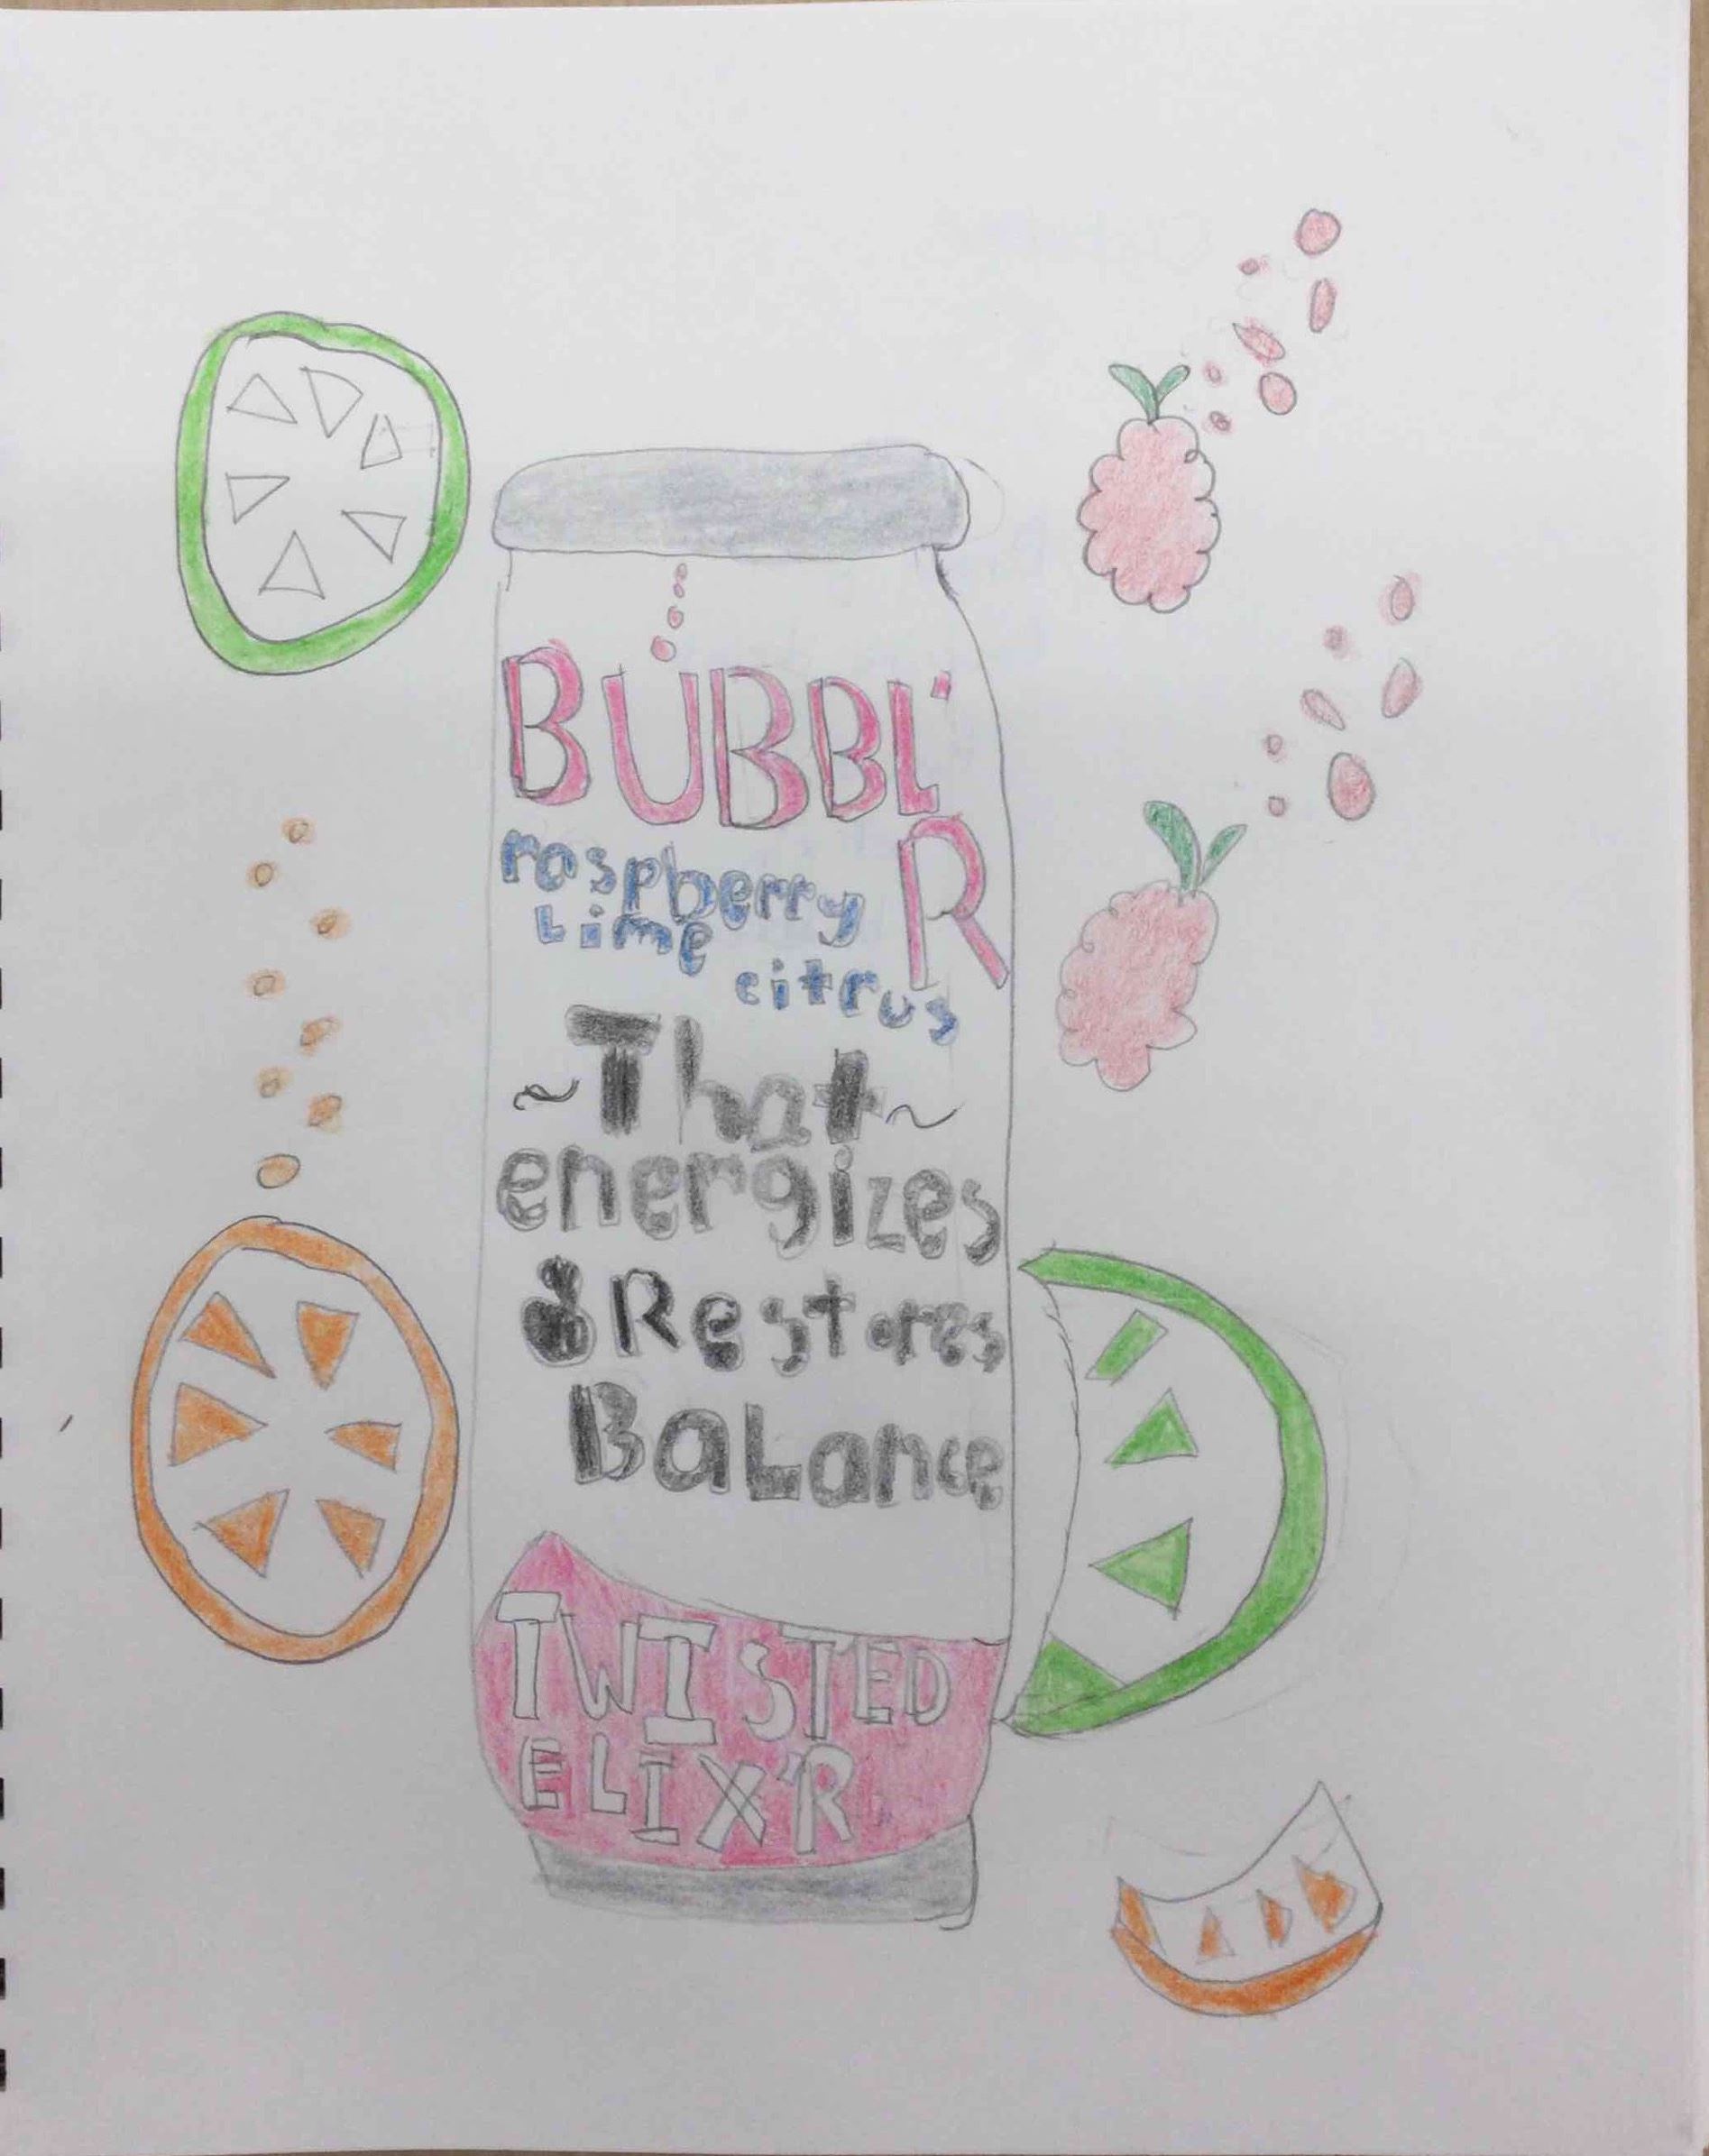 BUBBL'
R
raspberry
Lime
citrus
~That~
energizes
&Restores
BaLance
TWISTED
ELIX'R